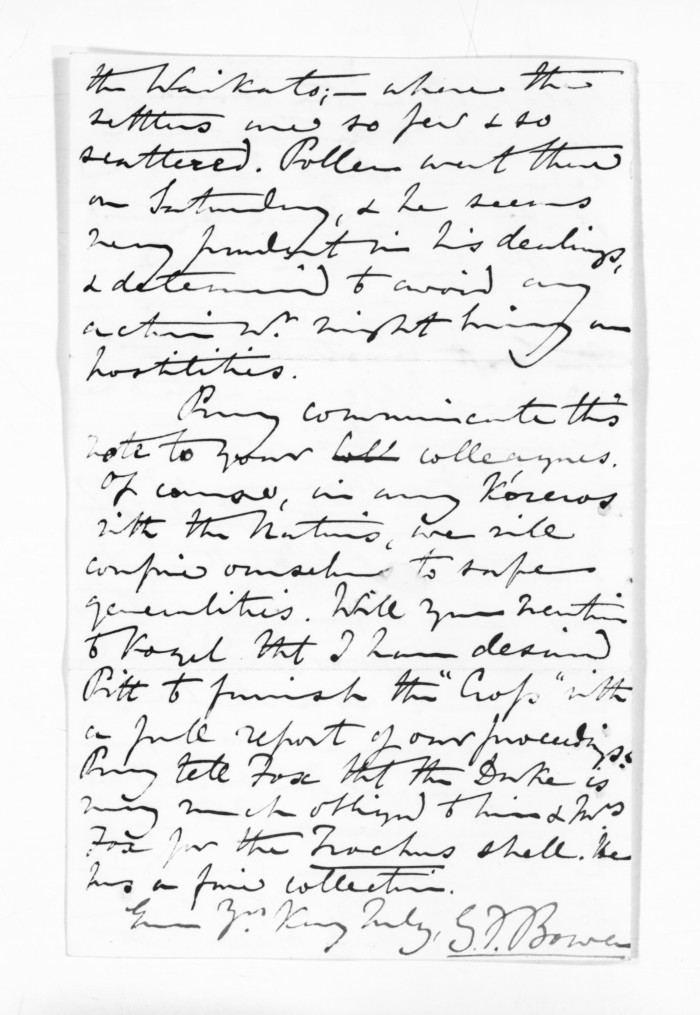 the Waikato; — where the
settlers are so few & so
scattered. Pollen went there
on Saturday, & he seems
very prudent in his dealings,
& determined to avoid any
action wh. might bring on
hostilities.
Pray communicate this
note to your coll colleagues.
Of course, in any Kóreros
with the Natives, we will
confine ourselves to safe
generalities. Will you mention
to Vogel tht I have desired
Pitt to furnish the "Cross" with
a full report of our proceedings.
Pray tell Fox tht the Duke is
very much obliged to him & Mrs
Fox for the Trochus shell. He
has a fine collection.
Ever Yrs very truly, G.F. Bowen